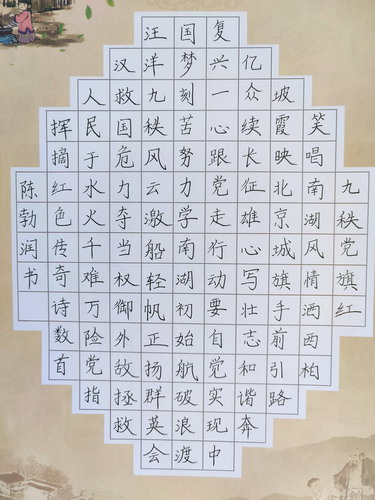 九秩党旗红
笑唱南湖风情洒西柏
坡霞映北京城旗手前引路
亿众续长征雄心写壮志和谐奔
复兴一心跟党走行动要自觉实现中
国梦刻苦努力学南湖初始航破浪渡
汪洋九秩风云激船轻帆正扬群英会
汉救国危力夺当权御外敌拯救
人民于水火千难万险党指
挥摘红色传奇诗数首
陈勃润书